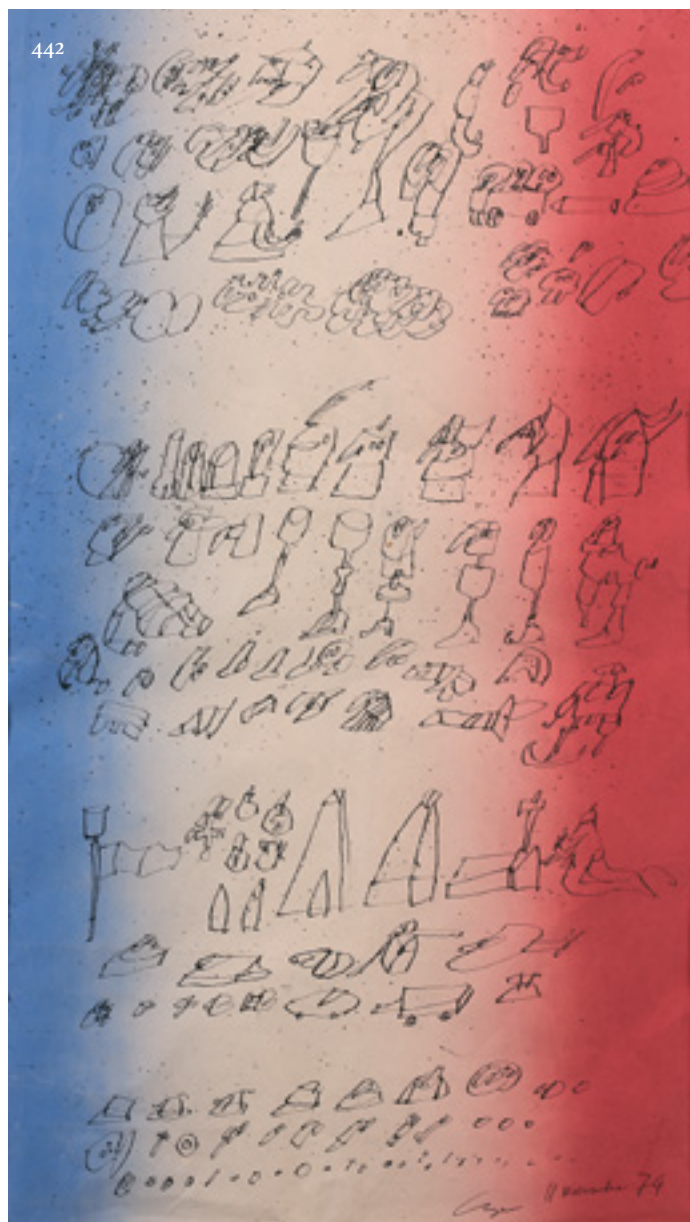 442
11 novembre 74